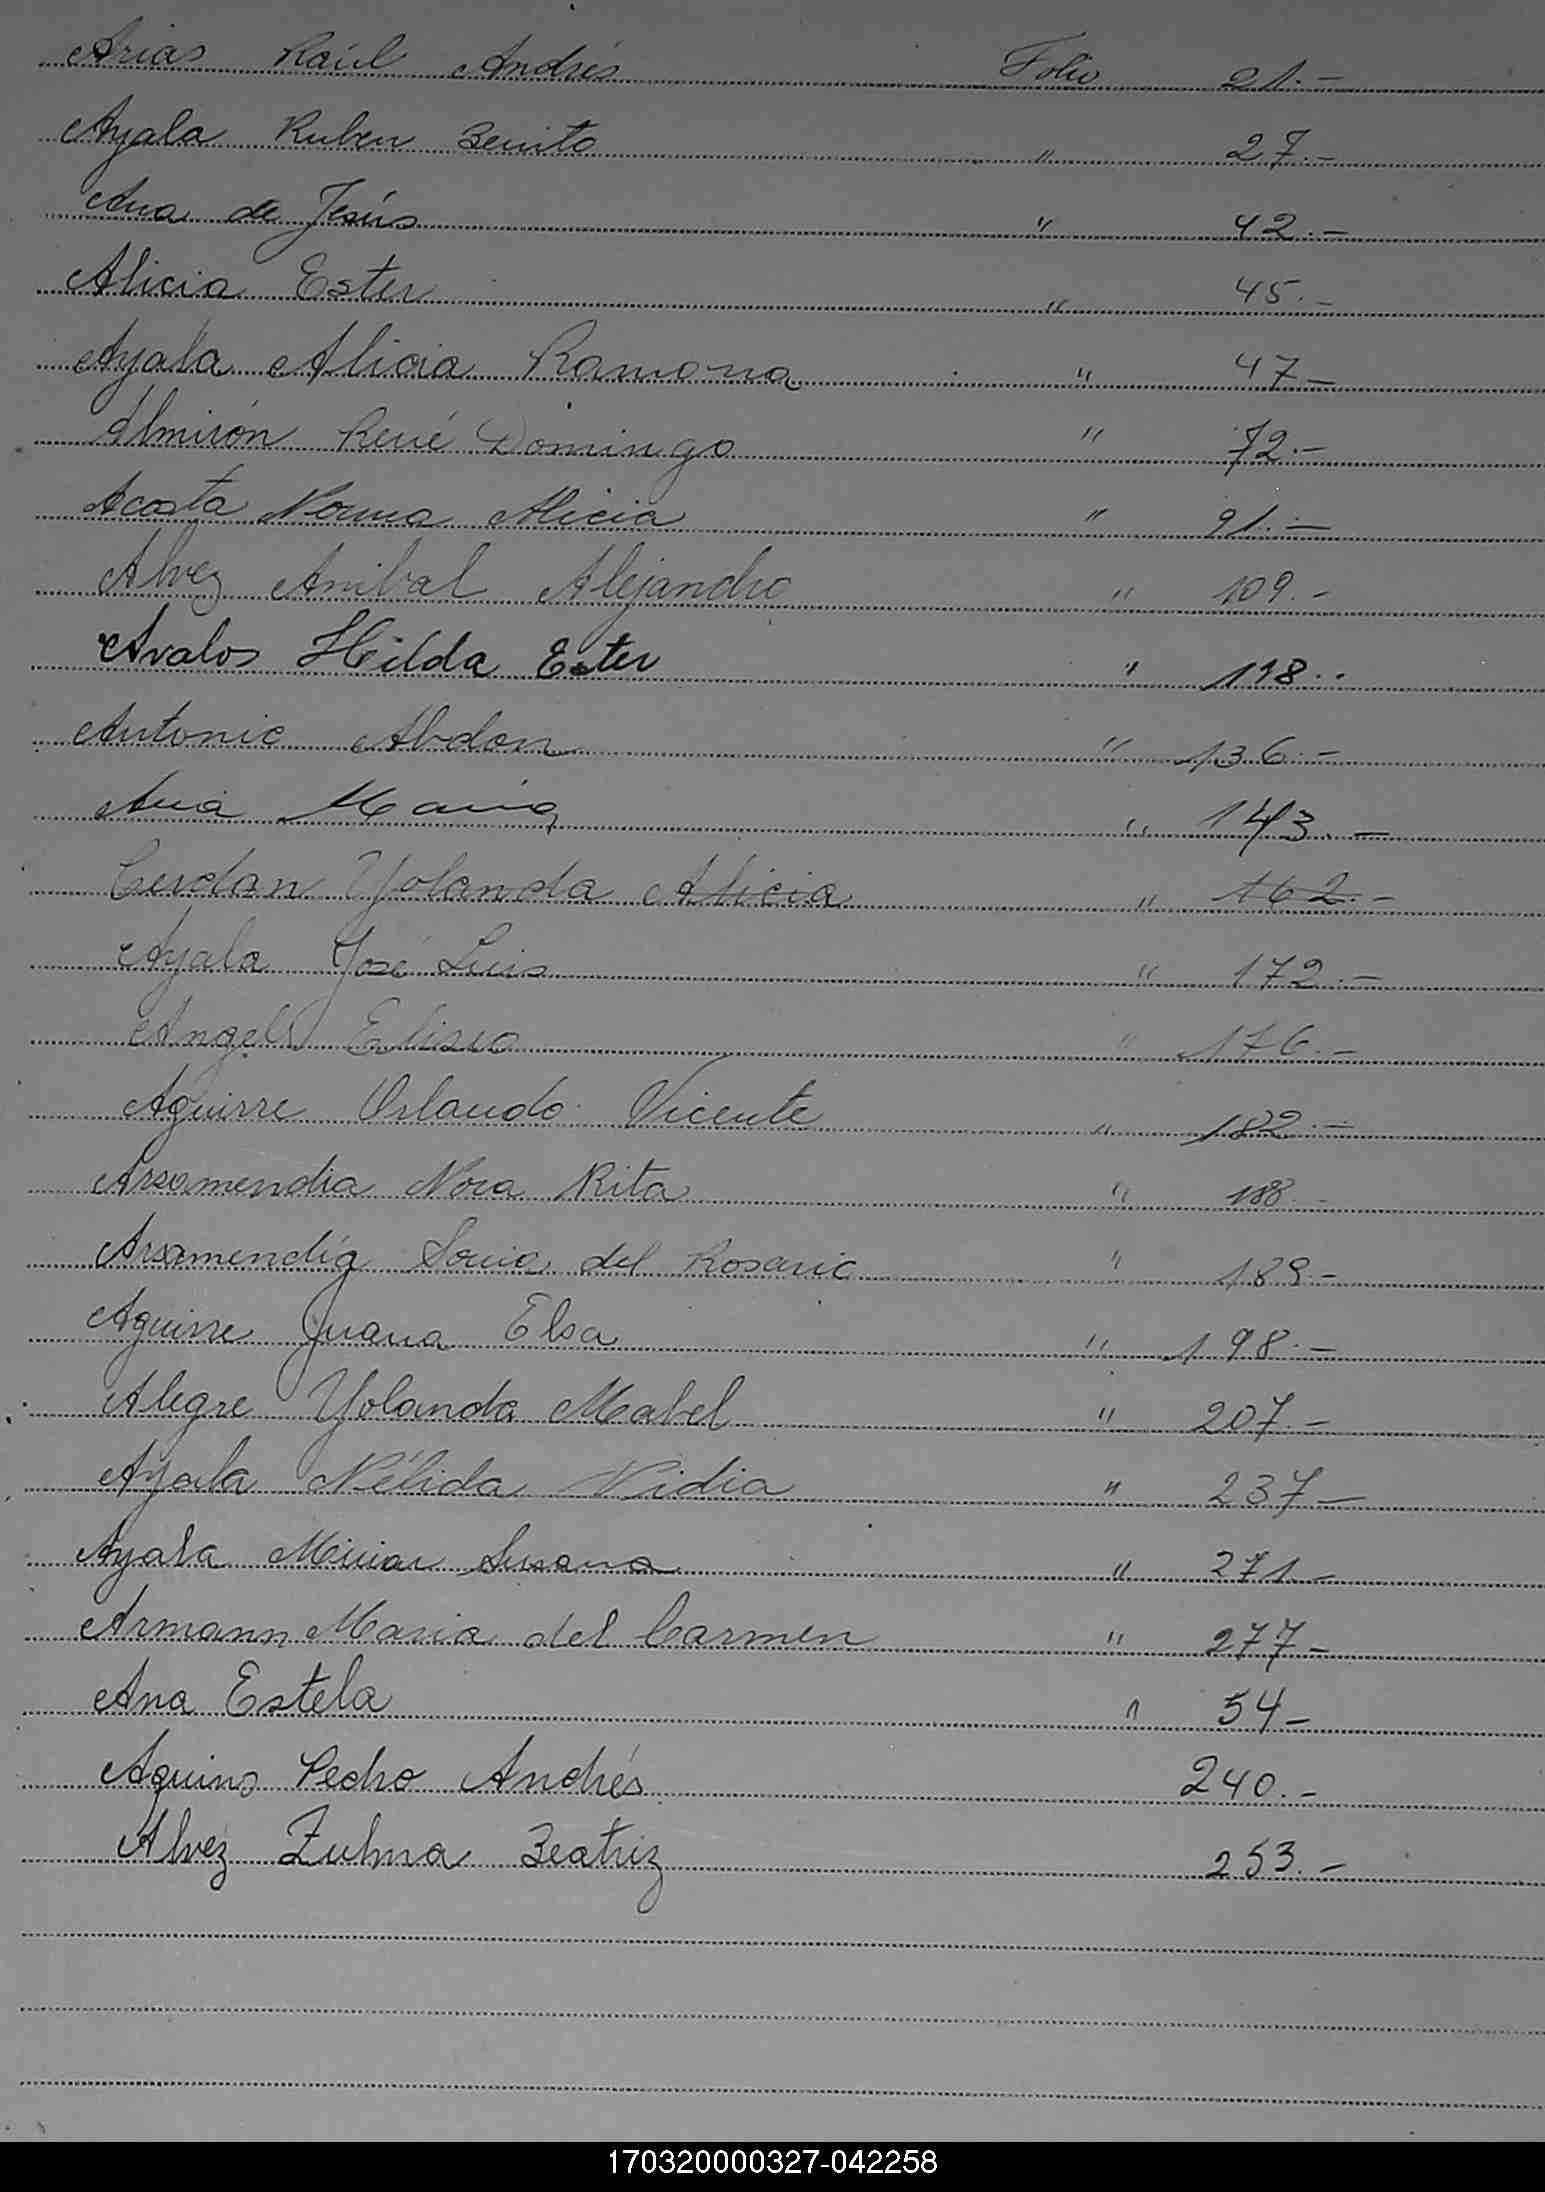 Arias Raúl Andrés Folio 21.-
Ayala Ruben Benito " 27.-
Ana de Jesús " 42.-
Alicia Ester " 45.-
Ayala Alicia Ramona " 47-
Almirón René Domingo " 72.-
Acosta Norma Alicia " 91.-
Alvez Anibal Alejandro " 109.-
Avalos Hilda Ester " 118..
Antonio Abdon " 136.-
Ana Maria " 143.-
Cerdan Yolanda Alicia " 162.-
Ayala José Luis " 172.-
Angel Eliseo " 176.-
Aguirre Orlando Vicente " 182.-
Arsamendia Nora Rita " 188.-
Arsamendia Sonia del Rosario " 189.-
Aguirre Juana Elsa " 198.-
Alegre Yolanda Mabel " 207.-
Ayala Nélida Nidia " 237-
Ayala Mirian Susana " 271.-
Armann Maria del Carmen " 277-
Ana Estela " 54-
Aquino Pedro Andrés 240.-
Alvez Zulma Beatriz 253.-
170320000327-042258